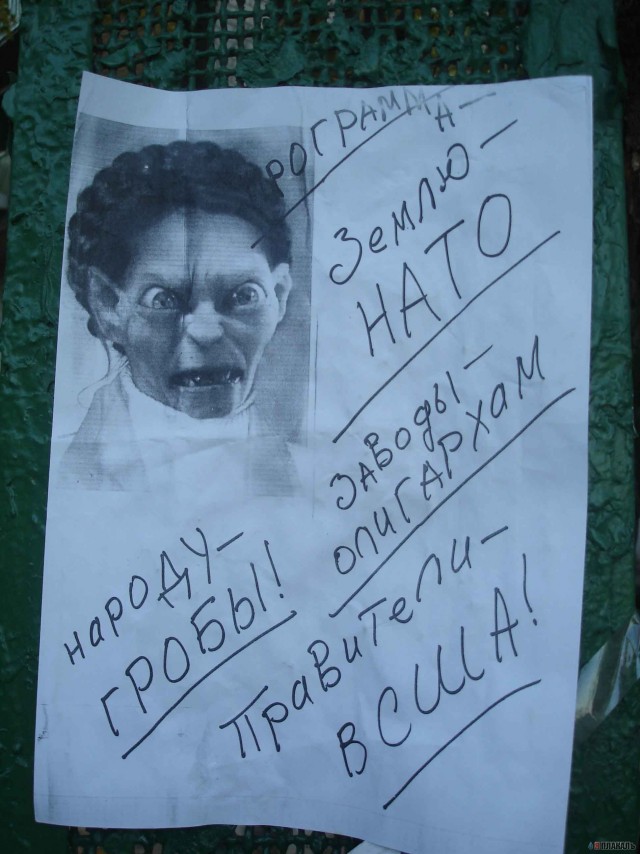 ПРОГРАММА-
Землю-
НАТО
ЗАВОДЫ-
ОЛИГАРХАМ
НАРОДУ-
ГРОБЫ!
ПРАВИТЕЛИ-
В США!
ПЛАКАЛЪ